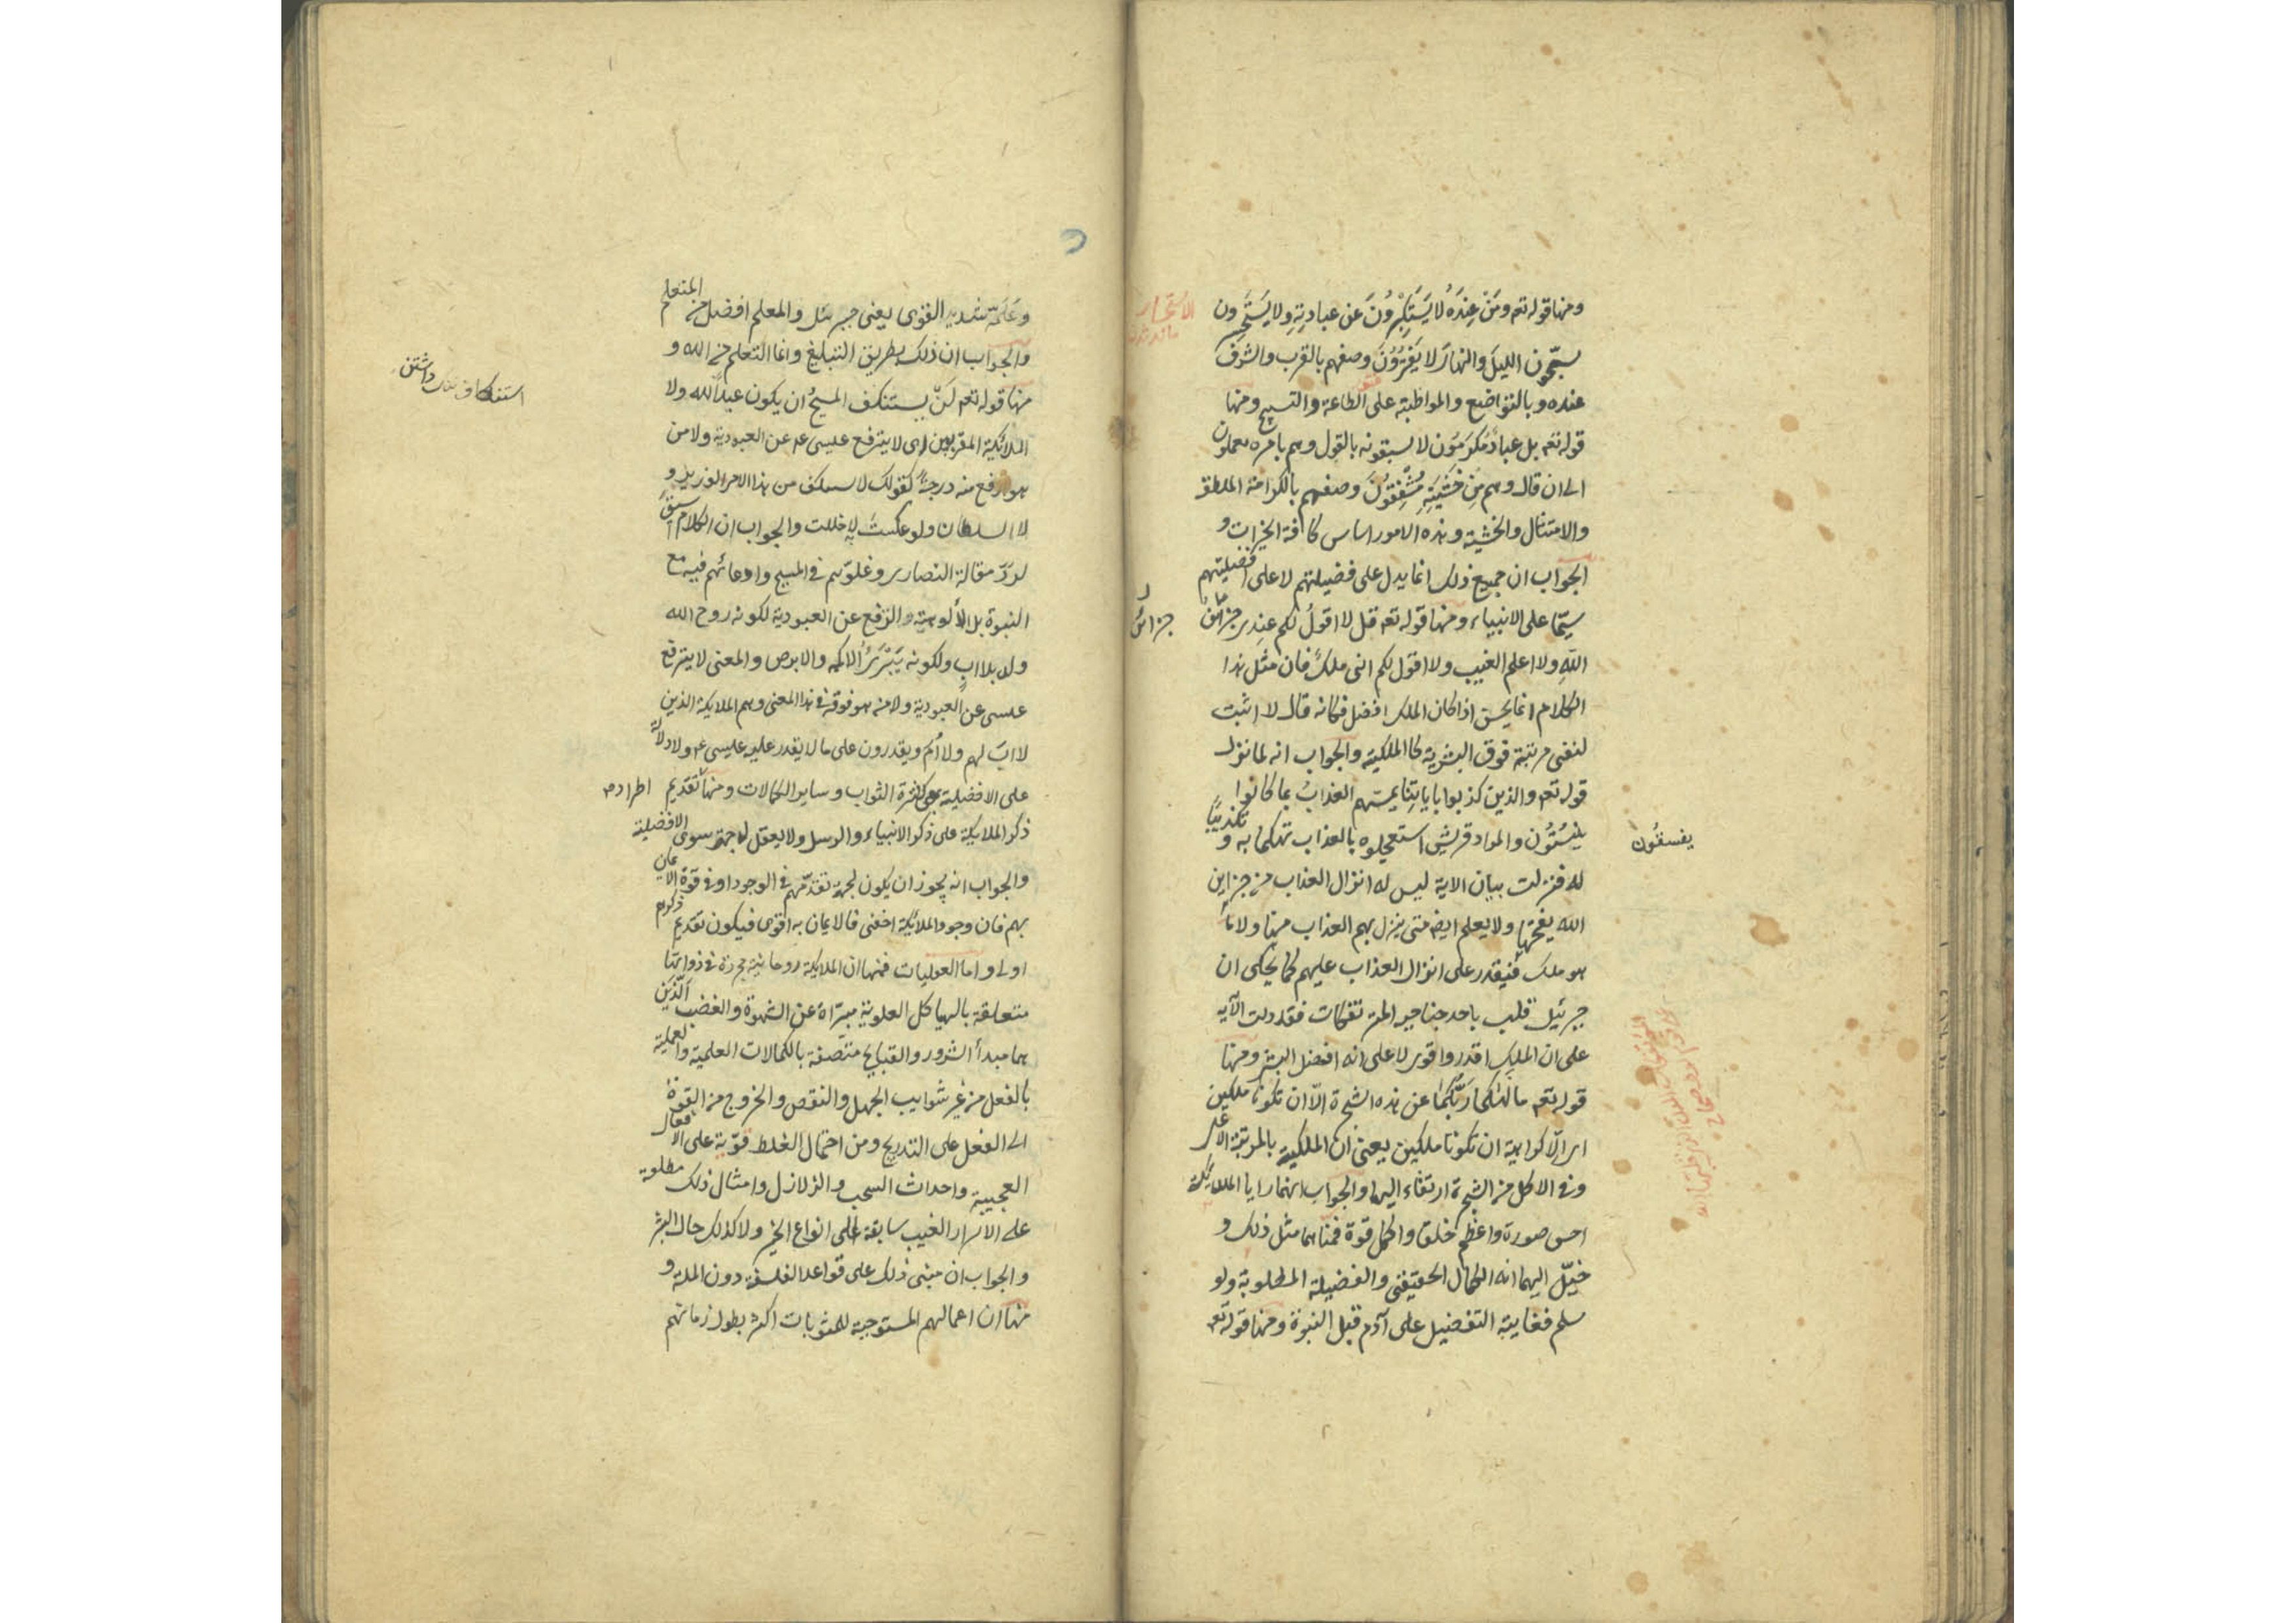 ومنها قوله تعم ومَنْ عِندَهُ لا يَسْتَكْبِرُونَ عن عبادتِهِ ولا يَسْتَحْسِرون
يسبّحون الليلَ والنهارَ لا يَفْتُرُونَ وصفهم بالقرب والشرف
عنده وبالتواضع والمواظبة على الطاعة والتسبيح ومنها
قوله تعم بل عبادٌ مُكرَمُون لا يسبقونه بالقول وهم بامره يعملون
الى ان قال وهم مِن خَشْيَتِهِ مُشْفِقُونَ وصفهم بالكرامة المطلقة
والامتثال والخشية وهذه الامور اساس كافة الخيرات و
الجواب ان جميع ذلك انما يدل على فضيلتهم لا على افضليتهم
سيّما على الانبياء ومنها قوله تعم قل لا اقولُ لكم عندِى خزائنُ
اللهِ ولا اعلم الغيب ولا اقول لكم انى ملكٌ فان مثل هذا
الكلام انما يحسن اذا كان الملك افضل فكانه قال لا اثبت
لنفسى مرتبة فوق البشرية كالملكية والجواب انه لما نزل
قوله تعم والذين كذبوا باياتِنا يمسّهم العذابُ بما كانوا
يفسُقُون والمراد قريش استعجلوه بالعذاب تهكّما به و تكذيبًا
له فنزلت بيان الاية ليس له انزال العذاب من خزاين
الله يفتحها ولا يعلم ايضا متى ينزل بهم العذاب منها ولا
هو ملك فيقدر على انزال العذاب عليهم كما يحكى ان
جبرئيل قلب باحد جناحيه المؤتفكات فقد دلت الآية
على ان الملك اقدر واقوى لا على انه افضل البشر ومنها
قوله تعم ما نَهٰكما رَبُّكُمَا عن هذه الشجرة الّا ان تكونا ملكين
اى الّا كراهية ان تكونا ملكين يعنى ان الملكية بالمرتبة الاعلى
وفى الاكل من الشجرة ارتقاء اليها والجواب انهما رايا الملائكة
احسن صورة واعظم خلق واكمل قوة فمنّاهما مثل ذلك و
خيّل اليهما انه الكمال الحقيقى والفضيلة المطلوبة ولو
سلم فغايته التفضيل على آدم قبل النبوة ومنها قوله تعم
الاستحسار
مانده شدن
خزائن
يفسقُون
وعَلّمَهُ شديد القوى يعنى جبرئيل والمعلم افضل من المتعلم
والجواب ان ذلك بطريق التبليغ وانما التعلم من الله و
منها قوله تعم لَنْ يستنكف المسيحُ ان يكون عبداً لله ولا
الملائكة المقربون اى لا يترفع عيسى عم عن العبودية ولا من
هو ارفع منه درجةً كقولك لا يستنكف من هذا الامر الوزير و
لا السلطان ولو عكستَ لاخللت والجواب ان الكلام سيق
لردّ مقالة النصارى وغلوّهم فى المسيح وادعائهم فيه مع
النبوة بل الألوهية والترفع عن العبودية لكونه روح الله
ولد بلا ابٍ ولكونه يَبْرَئُ الاكمه والابرص والمعنى لا يترفع
عيسى عن العبودية ولا من هو فوقه فى هذا المعنى وهم الملايكة الذين
لا ابَ لهم ولا اُمّ ويقدرون على ما لا يقدر عليه عيسى عم ولا دلالة
على الافضلية بمعنى كثرة الثواب وساير الكمالات ومنها تقديم
ذكر الملايكة على ذكر الانبياء والرسل ولا يعقل له جهة سوى الافضلية
والجواب انه يجوز ان يكون لجهة تقدّمهم فى الوجود او فى قوة الايمان
بهم فان وجود الملائكة اخفى فالايمان به اقوى فيكون تقديم ذكرهم
اولى واما العقليات فمنها ان الملايكة روحانية مجردة فى ذواتها
متعلقة بالهياكل العلوية مبرّاة عن الشهوة والغضب الّذَيْن
هما مبدأ الشرور والقبايح متّصفة بالكمالات العلمية والعملية
بالفعل من غير شوايب الجهل والنقص والخروج من القوة
الى الفعل على التدريج ومن احتمال الغلط قوّية على الافعال
العجيبة واحداث السحب والزلازل وامثال ذلك مطلعة
على الاسرار الغيب سابقة الى انواع الخير ولا كذلك حال البشر
والجواب ان مبنى ذلك على قواعد الفلسفة دون الملة و
منها ان اعمالهم المستوجبة للمثوبات اكثر بطول زمانهم
استنكاف ننك داشتن